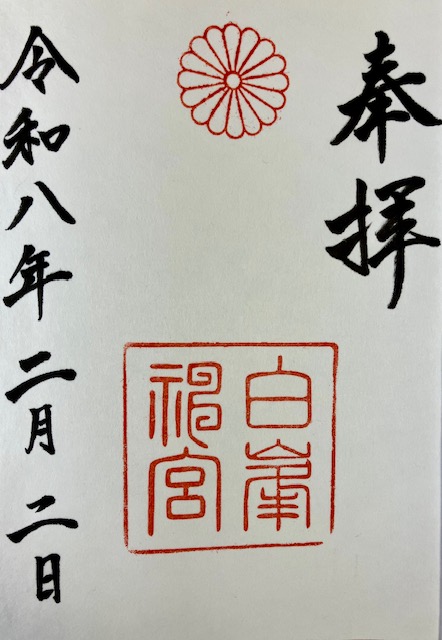 奉拝
白峯
神宮
令和八年二月二日